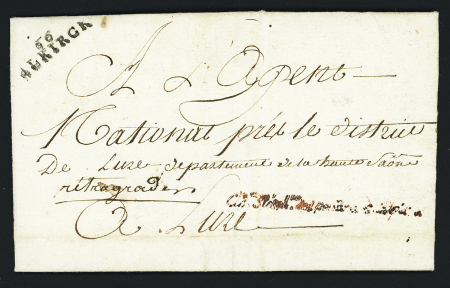 66
ALKIRCK
A L'Agent
National près le district
De Luxe departement de la haute Saône
rétrograder
A Luxe